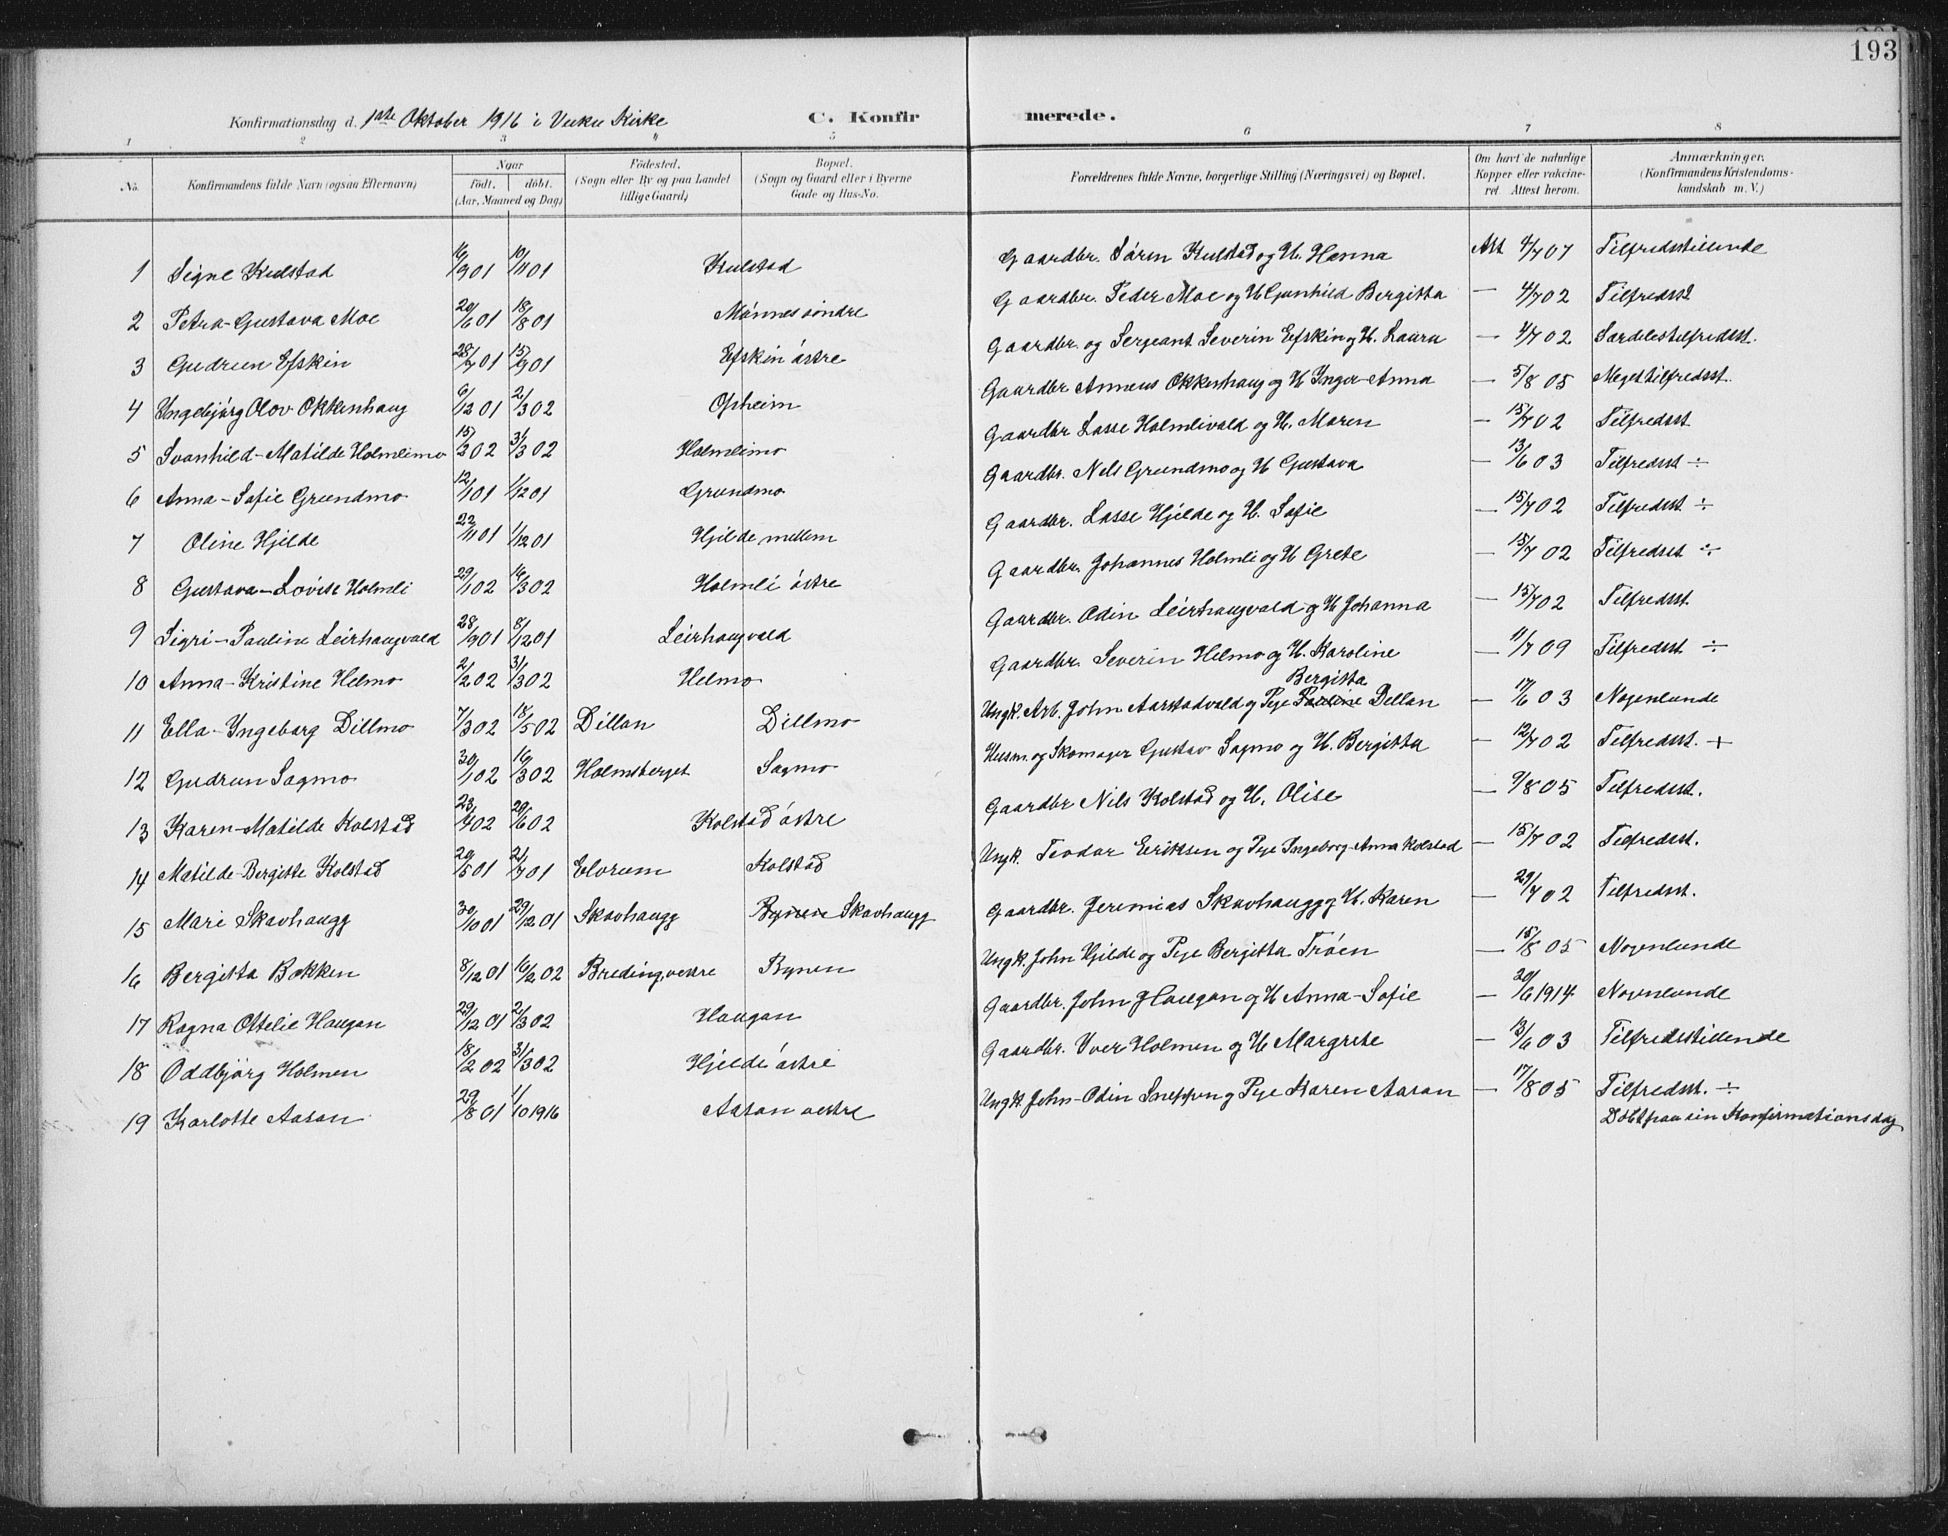 193
Konfirmationsdag d. 1ste Oktober 1916 i Vuku Kirke C. Konfirmerede.
1 2 3 4 5 6 7 8
No. Konfirmandens fulde Navn (ogsaa Efternavn) Naar födt. döbt. (Aar, Maaned og Dag) Födested. (Sogn eller By og paa Landet tillige Gaard) Bopæl. (Sogn og Gaard eller i Byerne Gade og Hus-No. Forældrenes fulde Navne, borgerlige Stilling (Næringsvei) og Bopæl. Om havt de naturlige Kopper eller vakcineret. Attest herom. Anmærkninger. (Konfirmandens Kristendomskundskab m. V.)
1 Signe Kulstad 16/9 01 10/11 01 Kulstad Gaardbr. Sören Kulstad og H. Hanna Att 4/7 07 Tilfredsstillende
2 Petra-Gustava Moe 20/6 01 18/8 01 Mönnes söndre Gaardbr. Peder Moe og H Gunhild Bergitta — 4/7 02 Tilfredsst
3 Gudrun Efskin 28/7 01 15/9 01 Efskin östre Gaardbr. og Sergeant Severin Efskin og H. Laura — 4/7 02 Særdeles tilfredsst.
4 Ingebjörg Olov Okkenhaug 6/12 01 2/3 02 Opheim Gaardbr Anneus Okkenhaug og H Inger-Anna — 5/8 05 Meget tilfredsst.
5 Svanhild-Matilde Holmlimo 15/2 02 31/3 02 Holmlimo Gaardbr Lasse Holmlivald og H. Maren — 15/7 02 Tilfredsst
6 Anna-Sofie Grundmo 12/1 01 1/12 01 Grundmo Gaardbr. Nels Grundmo og H Gustava — 13/6 03 Tilfredsst ÷
7 Oline Hjelde 22/11 01 1/12 01 Hjelde mellem Gaardbr. Lasse Hjelde og H. Sofie — 15/7 02 Tilfredsst ÷
8 Gustava-Lovise Holmli 29/1 02 16/3 02 Holmli östre Gaardbr. Johannes Holmli og H Grete — 15/7 02 Tilfredsst ÷
9 Sigri-Pauline Leirhaugvald 28/9 01 8/12 01 Leirhaugvald Gaardbr. Odin Leirhaugvald og H Johanna — 15/7 02 Tilfredsst
10 Anna-Kristine Helmo 2/2 02 31/3 02 Helmo Gaardbr. Severin Helmo og H. Karoline — 11/7 09 Tilfredsst ÷
11 Ella-Ingeborg Dillmo 7/3 02 18/5 02 Dillan Dillmo Ungk. Arb. John Aarstadvald og Pige Pauline Bergitta Dellan — 17/6 03 Nogenlunde
12 Gudrun Sagmo 30/1 02 16/3 02 Holmsberget Sagmo Husm. og Skomager Gustav Sagmo og H. Bergitta — 12/7 02 Tilfredsst. +
13 Karen-Matilde Kolstad 23/4 02 29/6 02 Kolstad östre Gaardbr Nils Kolstad og H. Olise — 9/8 05 Tilfredsst.
14 Matilde-Bergitte Kolstad 20/5 01 21/7 01 Elvrum Kolstad Ungk. Teodor Eriksen og Pige Ingeborg-Anna Kolstad — 15/7 02 Tilfredsst.
15 Mari Skavhaugg 30/10 01 29/12 01 Skavhaugg Bynen Skavhaugg Gaardbr. Jeremias Skavhaugg og H. Karen — 29/7 02 Tilfredsst.
16 Bergitta Bakken 8/12 01 16/2 02 Breding, vestre Bynen Ungk. John Hjelde og Pige Bergitta Tröen — 15/8 05 Nogenlunde
17 Ragna Ottelie Haugan 29/12 01 2/3 02 Haugan Gaardbr. John Haugan og H Anna-Sofie — 20/6 1914 Nogenlunde
18 Oddbjörg Holmen 18/2 02 31/3 02 Hjelde östre Gaardbr. Iver Holmen og H Margrete — 13/6 03 Tilfredsstillende
19 Karlotte Aasan 29/8 01 1/10 1916 Aasan vestre Ungk John-Odin Sneppen og Pige Karen Aasan — 17/8 05 Tilfredsst. ÷
Döbt paa sin Konfirmationsdag